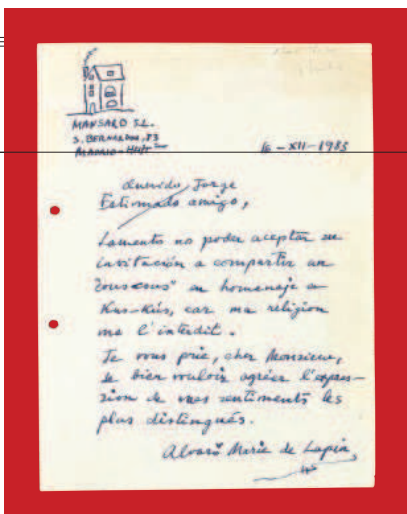 MANSARD S.L.
S. BERNARDO, 83
MADRID-
16-XII-1985
Querido Jorge
Estimado amigo,
Lamento no poder aceptar su
invitación a compartir un
"cous-cous" en homenaje a
Kus-Kús, car ma religion
me l'interdit.
Je vous prie, cher Monsieur,
de bien vouloir agréer l'expres-
sion de mes sentiments les
plus distingués.
Alvaro Marie de Lapin